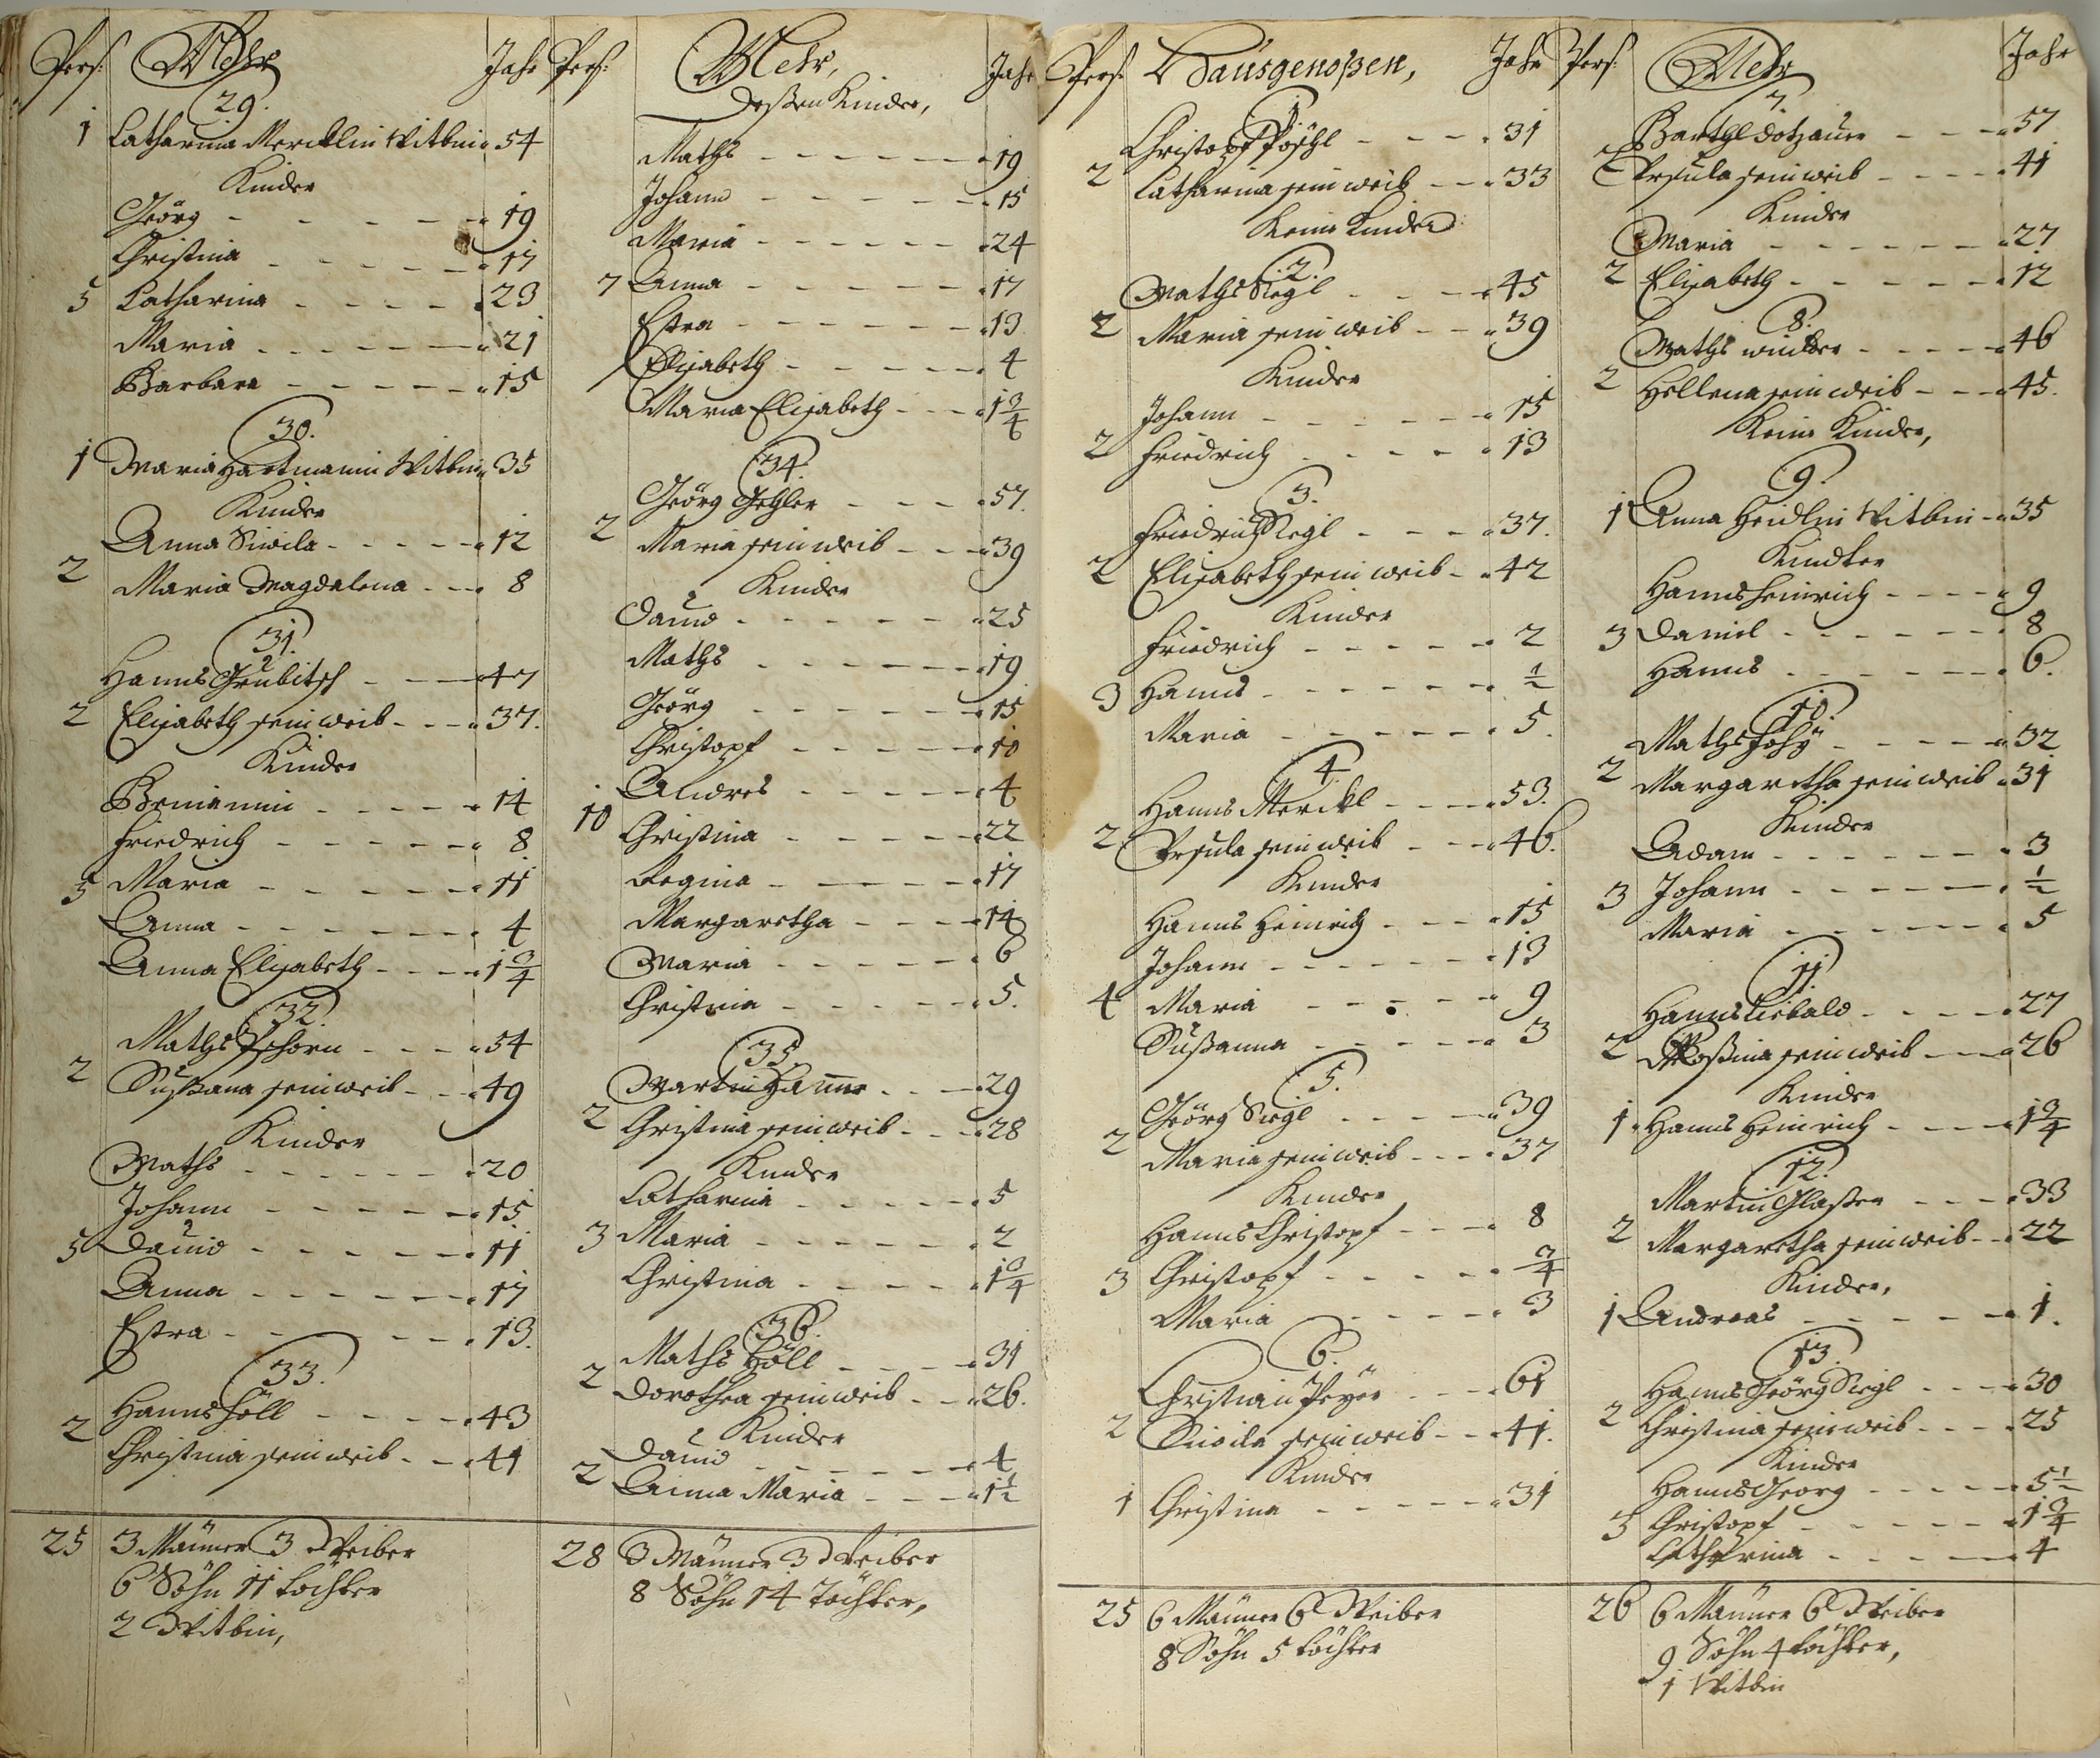 Pers: Mehr Jahr
29.
1 Catharina Mercklin Witbin 54
Kinder
Geörg - - - - - 19
Christina - - - - - 17
5 Catharina - - - - 23
Maria - - - - - 21
Barbara - - - - - 15
30.
1 Maria Hartmanin Witbin 35
Kinder
Anna Siwila - - - - 12
2 Maria Magdalena - - - 8
31.
Hanns Grübitsch - - - 47
2 Elisabeth sein weib - - - 37.
Kinder
Beniamin - - - - - 14
Friedrich - - - - - 8
5 Maria - - - - - 11
Anna - - - - - 4
Anna Elisabeth - - - - 1 3/4
32.
Maths Pschorn - - - 54
2 Sußana sein weib - - - 49
Kinder
Maths - - - - - 20
Johann - - - - - 15
5 Dauid - - - - - 11
Anna - - - - - 17
Estra - - - - - 13.
33.
Hanns Höll - - - - 43
2 Christina sein weib - - 41
25 3 Männer 3 Weiber
6 Söhn 11 töchter
2 Witbin,
Pers: Mehr, Jahr
Deßen Kinder,
Maths - - - - - 19
Johann - - - - - 15
Maria - - - - - 24
7 Anna - - - - - 17
Estra - - - - - 13
Elisabeth - - - - - 4
Maria Elisabeth - - - 1 3/4
34.
Geörg Gehler - - - 57.
2 Maria sein weib - - - 39
Kinder
Dauid - - - - - 25
Maths - - - - - 19
Geörg - - - - - 15
Christopf - - - - - 10
Andres - - - - - 4
10 Christina - - - - - 22
Regina - - - - - 17
Margaretha - - - - 14
Maria - - - - - 6
Christina - - - - - 5.
35.
Martin Hamer - - - 29
2 Christina sein weib - - - 28
Kinder
Catharina - - - - - 5
3 Maria - - - - - 2
Christina - - - - - 1 3/4
36.
Maths Höll - - - - 31
2 Dorothea sein weib - - 26.
Kinder
Dauid - - - - - 4
2 Anna Maria - - - 1 1/2
28 3 Männer 3 Weiber
8 Söhn 14 Töchter,
Pers: Hausgenoßen, Jahr
1
Christopf Pöschl - - - 31
2 Catharina sein weib - - 33
Keine Kinder
2.
Maths Siegl - - - 45
2 Maria sein weib - - 39
Kinder
Johann - - - - - 15
2 Friedrich - - - - 13
3.
Friedrich Siegl - - - 37.
2 Elisabeth sein weib - 42
Kinder
Friedrich - - - - - 2
3 Hanns - - - - - 1/2
Maria - - - - - 5.
4
Hanns Merckl - - - - 53.
2 Vrsula sein weib - - - 46.
Kinder
Hanns Heinrich - - - 15
Johann - - - - - 13
4 Maria - - - - - 9
Sußanna - - - - - 3
5.
Geörg Siegl - - - - 39
2 Maria sein weib - - - 37
Kinder
Hanns Christopf - - - 8
3 Christopf - - - - - 3/4
Maria - - - - - 3
6.
Christian Peyer - - - 61
2 Siwila sein weib - - 41.
Kinder
1 Christina - - - - - 31
25 6 Männer 6 Weiber
8 Söhn 5 töchter
Pers: Mehr Jahr
7.
Barthl Dotzauer - - - 57
2 Vrsula sein weib - - - - 41
Kinder
Maria - - - - - 27
2 Elisabeth - - - - - 12
8.
Maths winkler - - - - 46
2 Hellena sein weib - - - 45.
Keine Kinder,
9.
1 Anna Heidlin Witbin - 35
Kindter
Hanns Heinrich - - - - 9
3 Daniel - - - - - 8
Hanns - - - - - 6.
10.
Maths - - - - - 32
2 Margaretha sein weib 31
Kinder
Adam - - - - - 3
3 Johann - - - - - 1/2
Maria - - - - - 5
11
Hanns Liebald - - - - 27
2 Roßina sein weib - - 26
Kinder
1 Hanns Heinrich - - - - 1 3/4
12.
Martin Glaßer - - - 33
2 Margaretha sein weib - - 22
Kinder,
1 Andreas - - - - - 1.
13.
Hanns Geörg Siegl - - - 30
2 Christina sein weib - - - 25
Kinder
Hanns Georg - - - - - 5 1/2
3 Christopf - - - - - 1 3/4
Catharina - - - - - 4
26 6 Männer 6 Weiber
9 Söhn 4 töchter,
1 Witbin